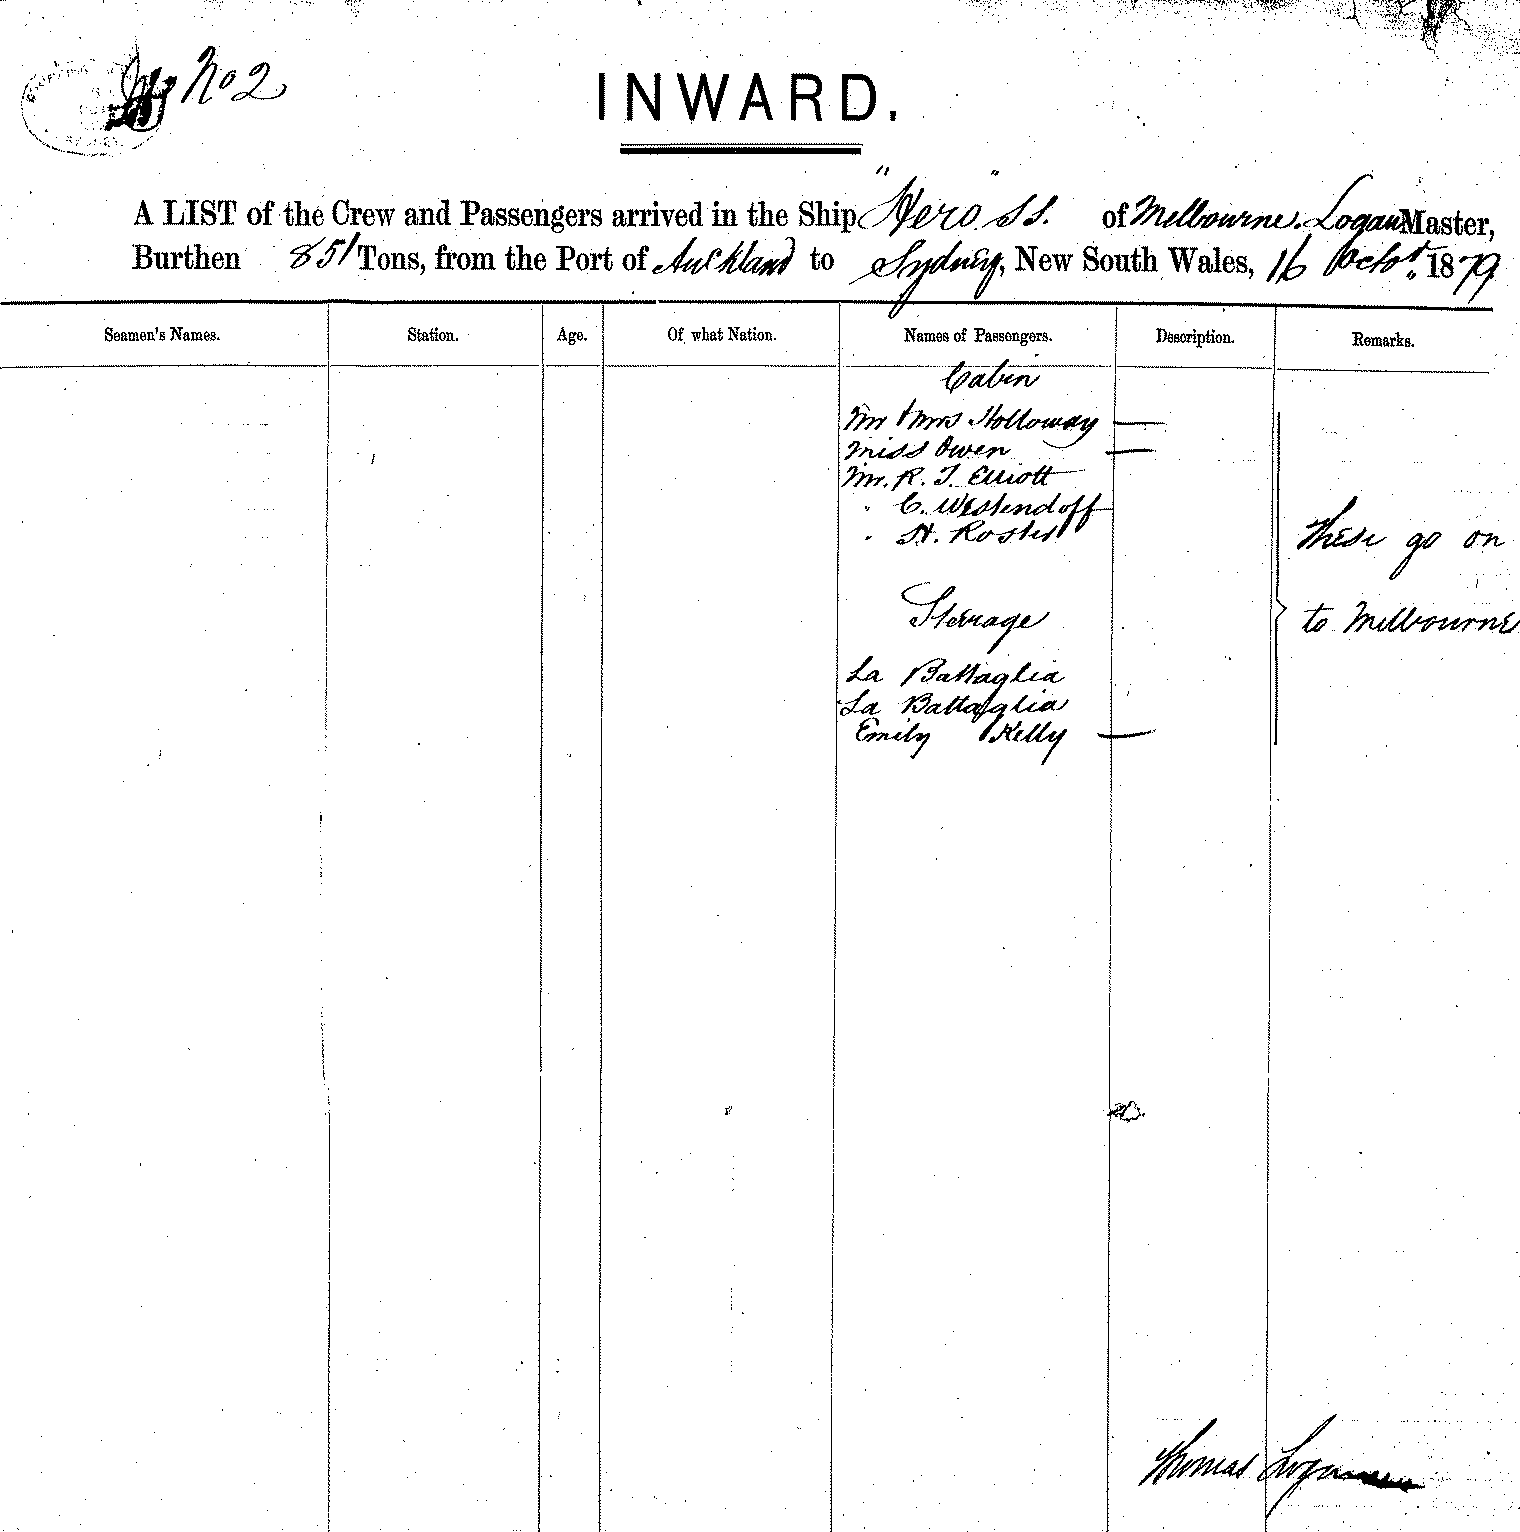 No 2
INWARD.
A LIST of the Crew and Passengers arrived in the Ship "Hero" SS. of Melbourne. Logan Master,
Burthen 851 Tons, from the Port of Auckland to Sydney, New South Wales, 16 Octor. 1879
Seamen's Names. Station. Age. Of what Nation. Names of Passengers. Description. Remarks.
Cabin
Mr & Mrs Holloway —
Miss Owen —
Mr. R. T. Elliott
" C. Westendoff
" H. Roster
These go on
Steerage
to Melbourne
La Battaglia
La Battaglia
Emily Kelly —
Thomas Logan